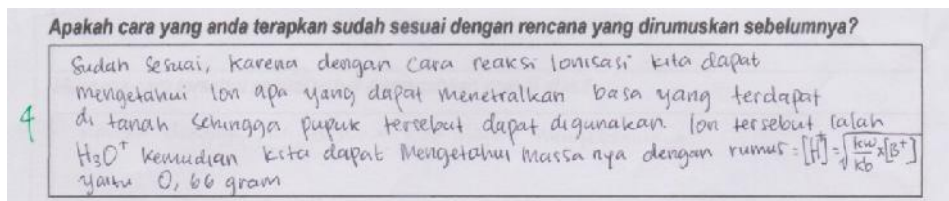 Apakah cara yang anda terapkan sudah sesuai dengan rencana yang dirumuskan sebelumnya?
Sudah sesuai, karena dengan cara reaksi ionisasi kita dapat
mengetahui ion apa yang dapat menetralkan basa yang terdapat
4 di tanah sehingga pupuk tersebut dapat digunakan. Ion tersebut ialah
H₃O⁺ kemudian kita dapat mengetahui massa nya dengan rumus = [H⁺] = √(kw/kb x [B⁺])
yaitu 0,66 gram